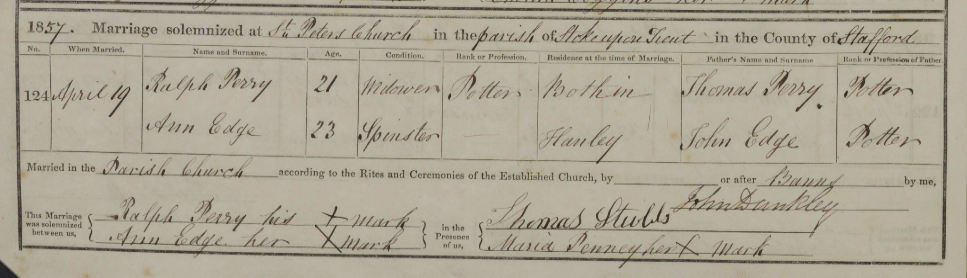 1857. Marriage solemnized at St. Peters Church in the parish of Stoke upon Trent in the County of Stafford
No. When Married. Name and Surname. Age. Condition. Rank or Profession. Residence at the time of Marriage. Father's Name and Surname Rank or Profession of Father.
124 April 19 Ralph Perry 21 Widower Potter Both in Thomas Perry Potter
Ann Edge 23 Spinster — Hanley John Edge Potter
Married in the Parish Church according to the Rites and Ceremonies of the Established Church, by or after Banns by me,
John Dunkley
This Marriage was solemnized between us, Ralph Perry his X mark in the Presence of us, Thomas Stubbs
Ann Edge her X mark Maria Penney her X mark